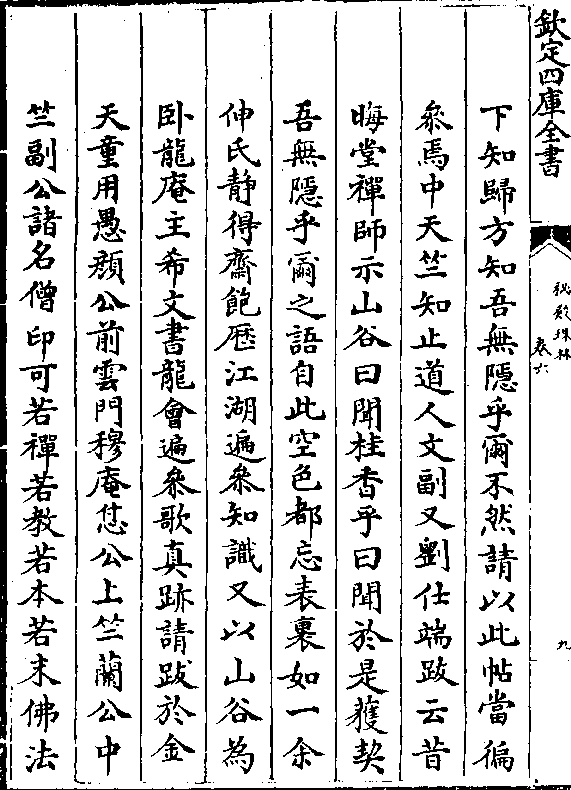 欽定四庫全書
秘殿珠林
卷六
九
下知歸方知吾無隱乎爾不然請以此帖當徧
叅焉中天竺知止道人文副又劉仕端跋云昔
晦堂禪師示山谷曰聞桂香乎曰聞於是獲契
吾無隱乎爾之語自此空色都忘表裏如一余
仲氏静得齋飽歴江湖遍叅知識又以山谷為
卧龍庵主希文書龍會遍叅歌真跡請跋於金
天童用愚顔公前雲門穆庵𢙀公上竺蘭公中
竺副公諸名僧印可若禪若教若本若末佛法